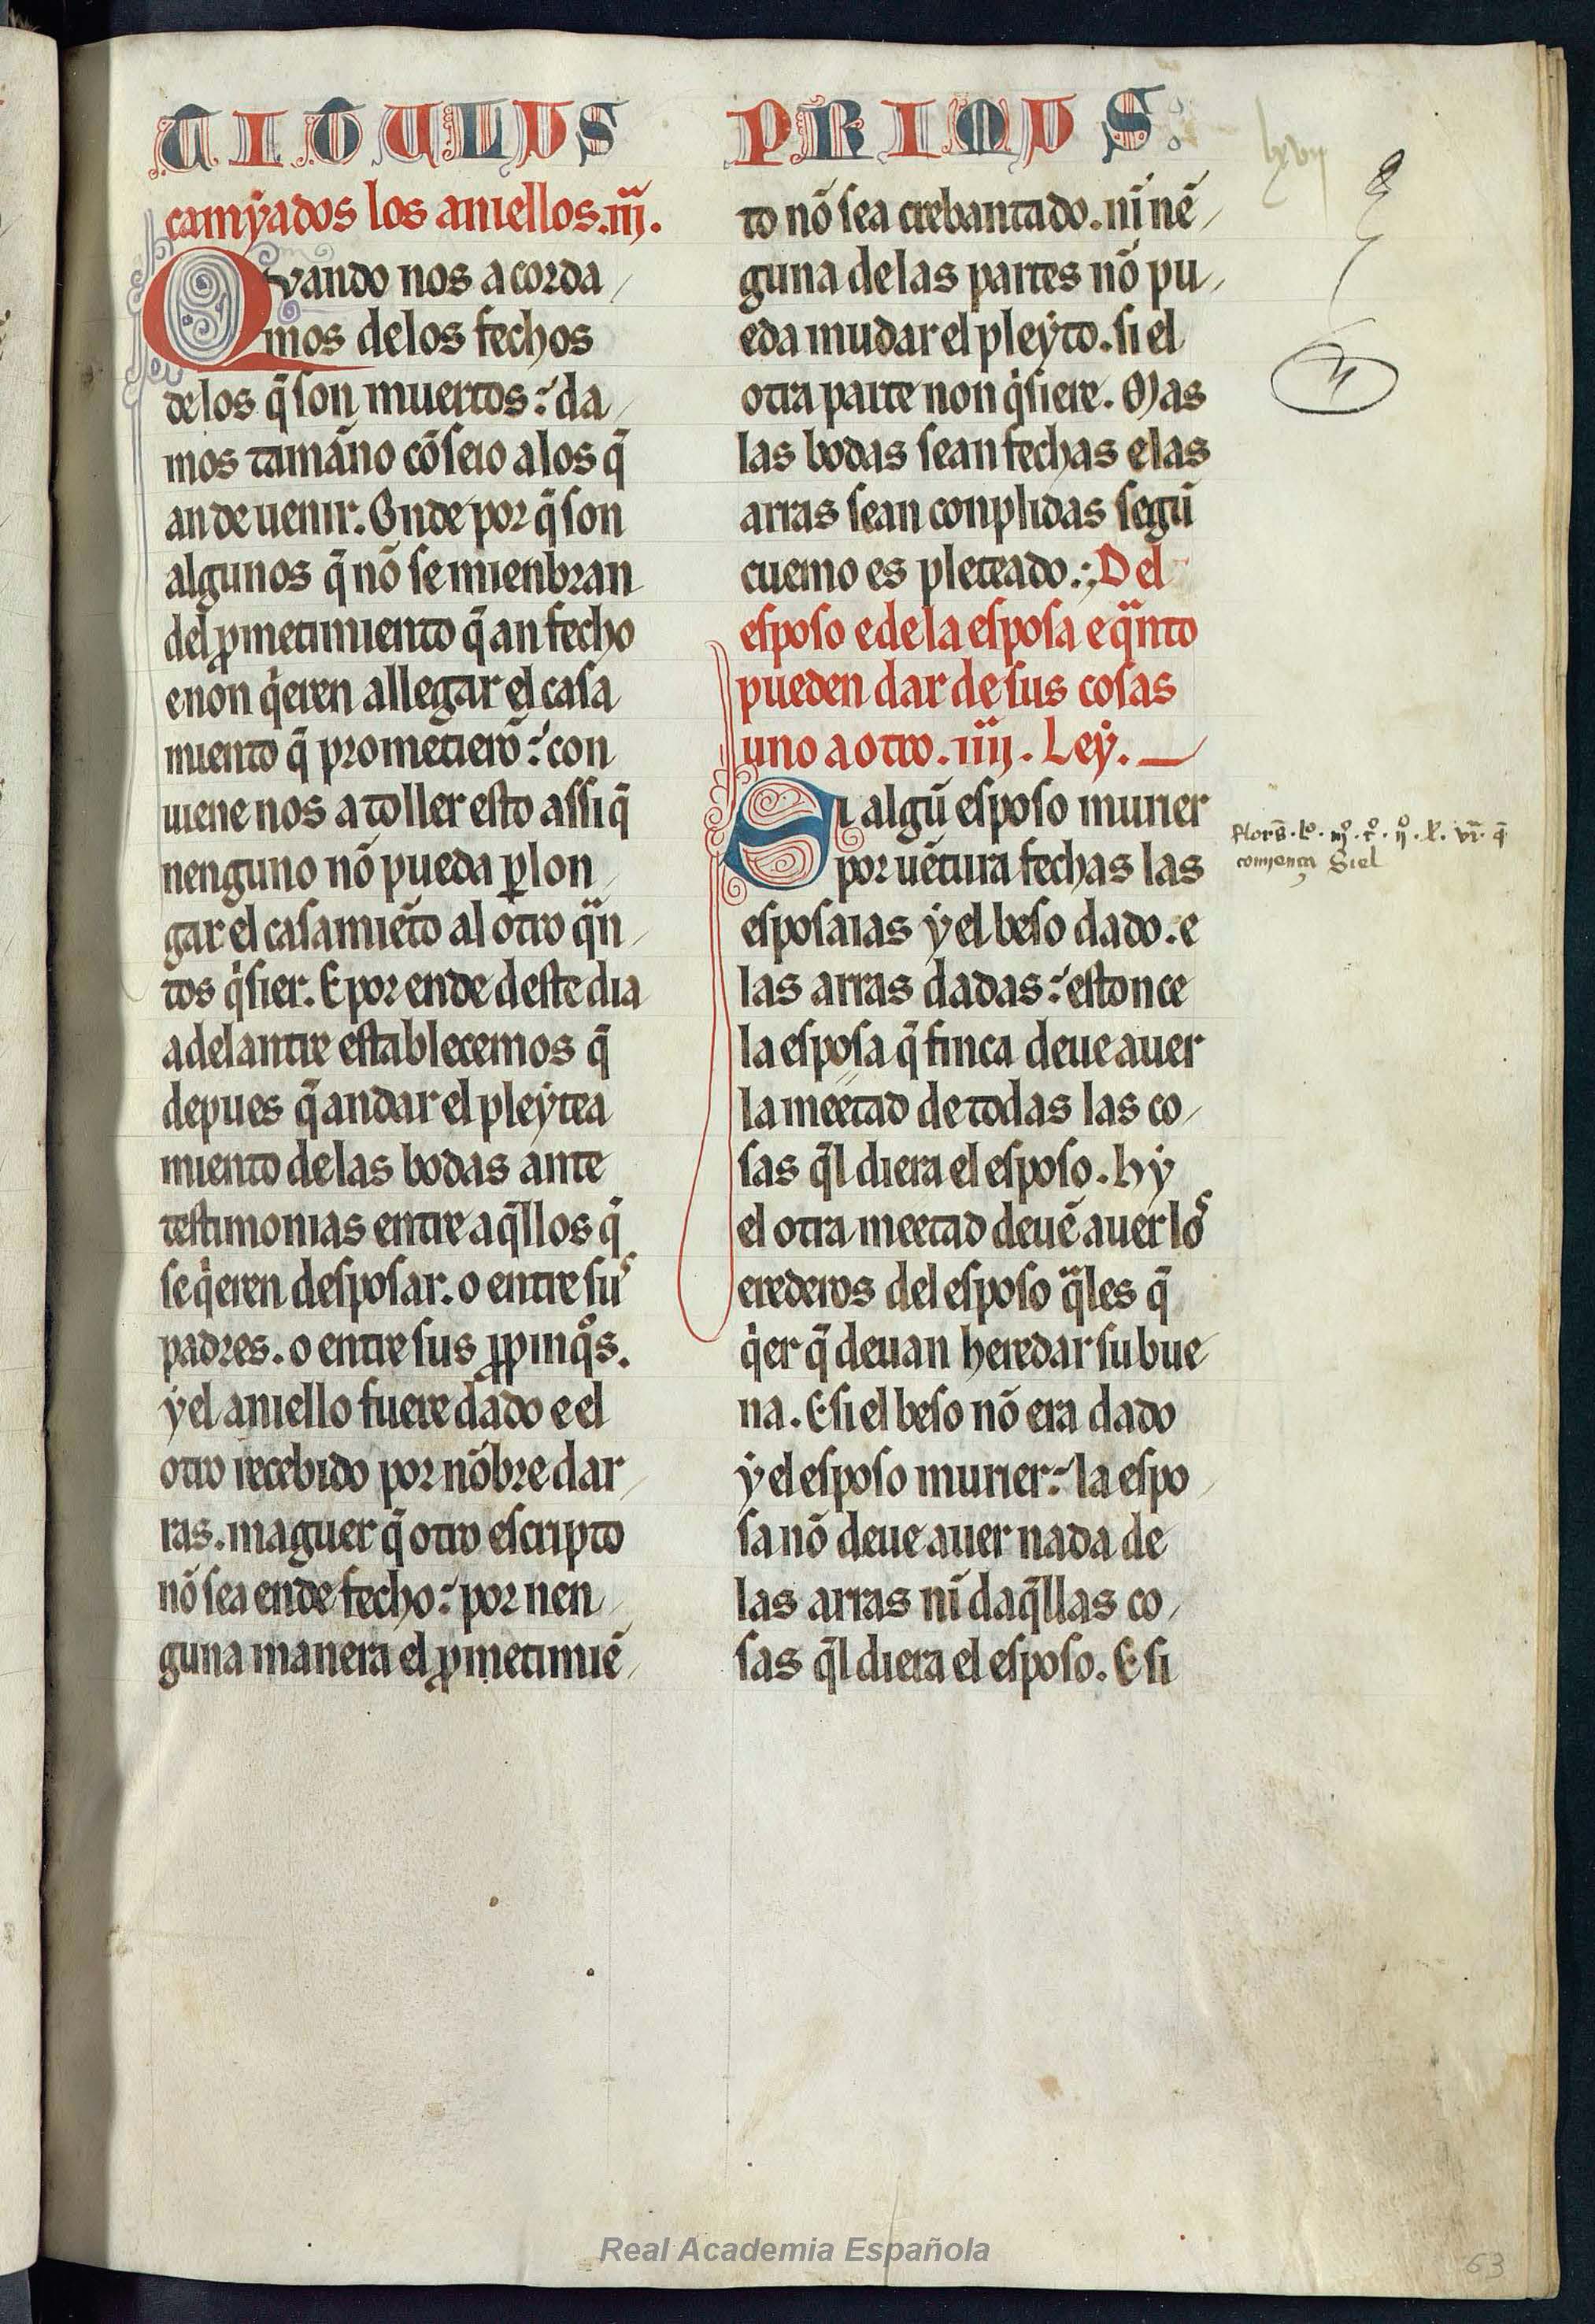 TITULUS PRIMUS:
camẏados los aniellos .iij.
Quando nos acorda
mos delos fechos
delos q̃ son muertos: da
mos tamãno cõseio alos q̃
an de uenir. Onde por q̃ son
algunos q̃ nõ se mienbran
del ꝓmetimiento q̃ an fecho
e non q̇eren allegar el casa
miento q̃ prometierõ: con
uiene nos a toller esto assi q̃
nenguno nõ pueda ꝑlon
gar el casamiẽto al otro qũn
tos q̇sier. E por ende deste dia
adelantre establecemos q̃
depues q̃ andar el pleẏtea
miento delas bodas ante
testimonias entre aq̃llos q̃
se q̇eren desposar. o entre suˢ
padres. o entre sus ꝓpinq̊s.
ẏ el aniello fuere dado e el
otro recebido por nõbre dar
ras. maguer q̃ otro escripto
nõ sea ende fecho: por nen
guna manera el ꝓmetimiẽ
to nõ sea crebantado. nĩ nẽ
guna delas partes nõ pu
eda mudar el pleẏto. si el
otra parte non q̇siere. Mas
las bodas sean fechas e las
arras sean conplidas segũ
cuemo es pleteado.:, Del
esposo e dela esposa e qũnto
pueden dar de sus cosas
uno a otro. iiii. Leẏ.
Si algũ esposo murier
por uẽtura fechas las
esposaias ẏ el beso dado. e
las arras dadas: estonce
la esposa q̃ finca deue auer
la meetad de todas las co
sas q̃l diera el esposo. hẏ
el otra meetad deuẽ auer loˢ
erederos del esposo qũles q̃
q̇er q̃ deuan heredar su bue
na. E si el beso nõ era dado
ẏ el esposo murier: la espo
sa nõ deue auer nada de
las arras nĩ daq̃llas co
sas q̃l diera el esposo. E si
lxvij
comiença Siel
63
Real Academia Española